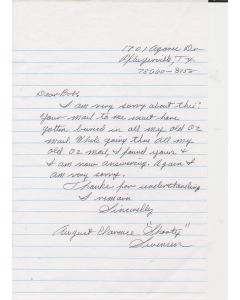 1701 Agarie Dr
Pflugerville, Tx.
78660-8152
Dear Bob,
I am very sorry about this.
Your mail to me must have
gotten buried in all my old O2
mail. While going thru all my
old O2 mail, I found yours &
I am now answering. Again I
am very sorry.
Thanks for understanding
I remain
Sincerelly
August Clarence "Shooty"
Swensen